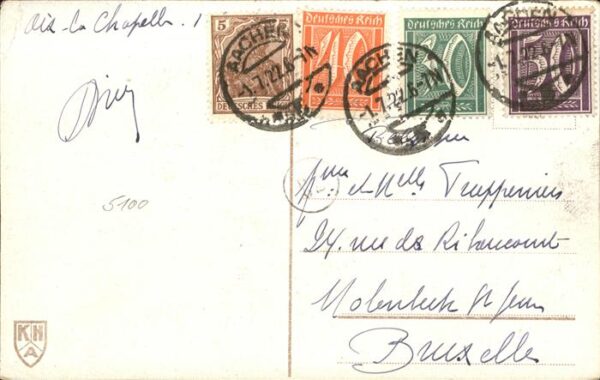 Aix-la Chapelle. 1
5
DEUTSCHES
Deutsches Reich
40
Deutsches Reich
Deutsches Reich
AACHEN
-1.7.22.6-7N
AACHEN
-1.7.22.6-7N
AACHEN
5100
Mme et Melles Trappeniers
24. rue de Ribaucourt
Molenbeek St Jean
Bruxelles
KHA